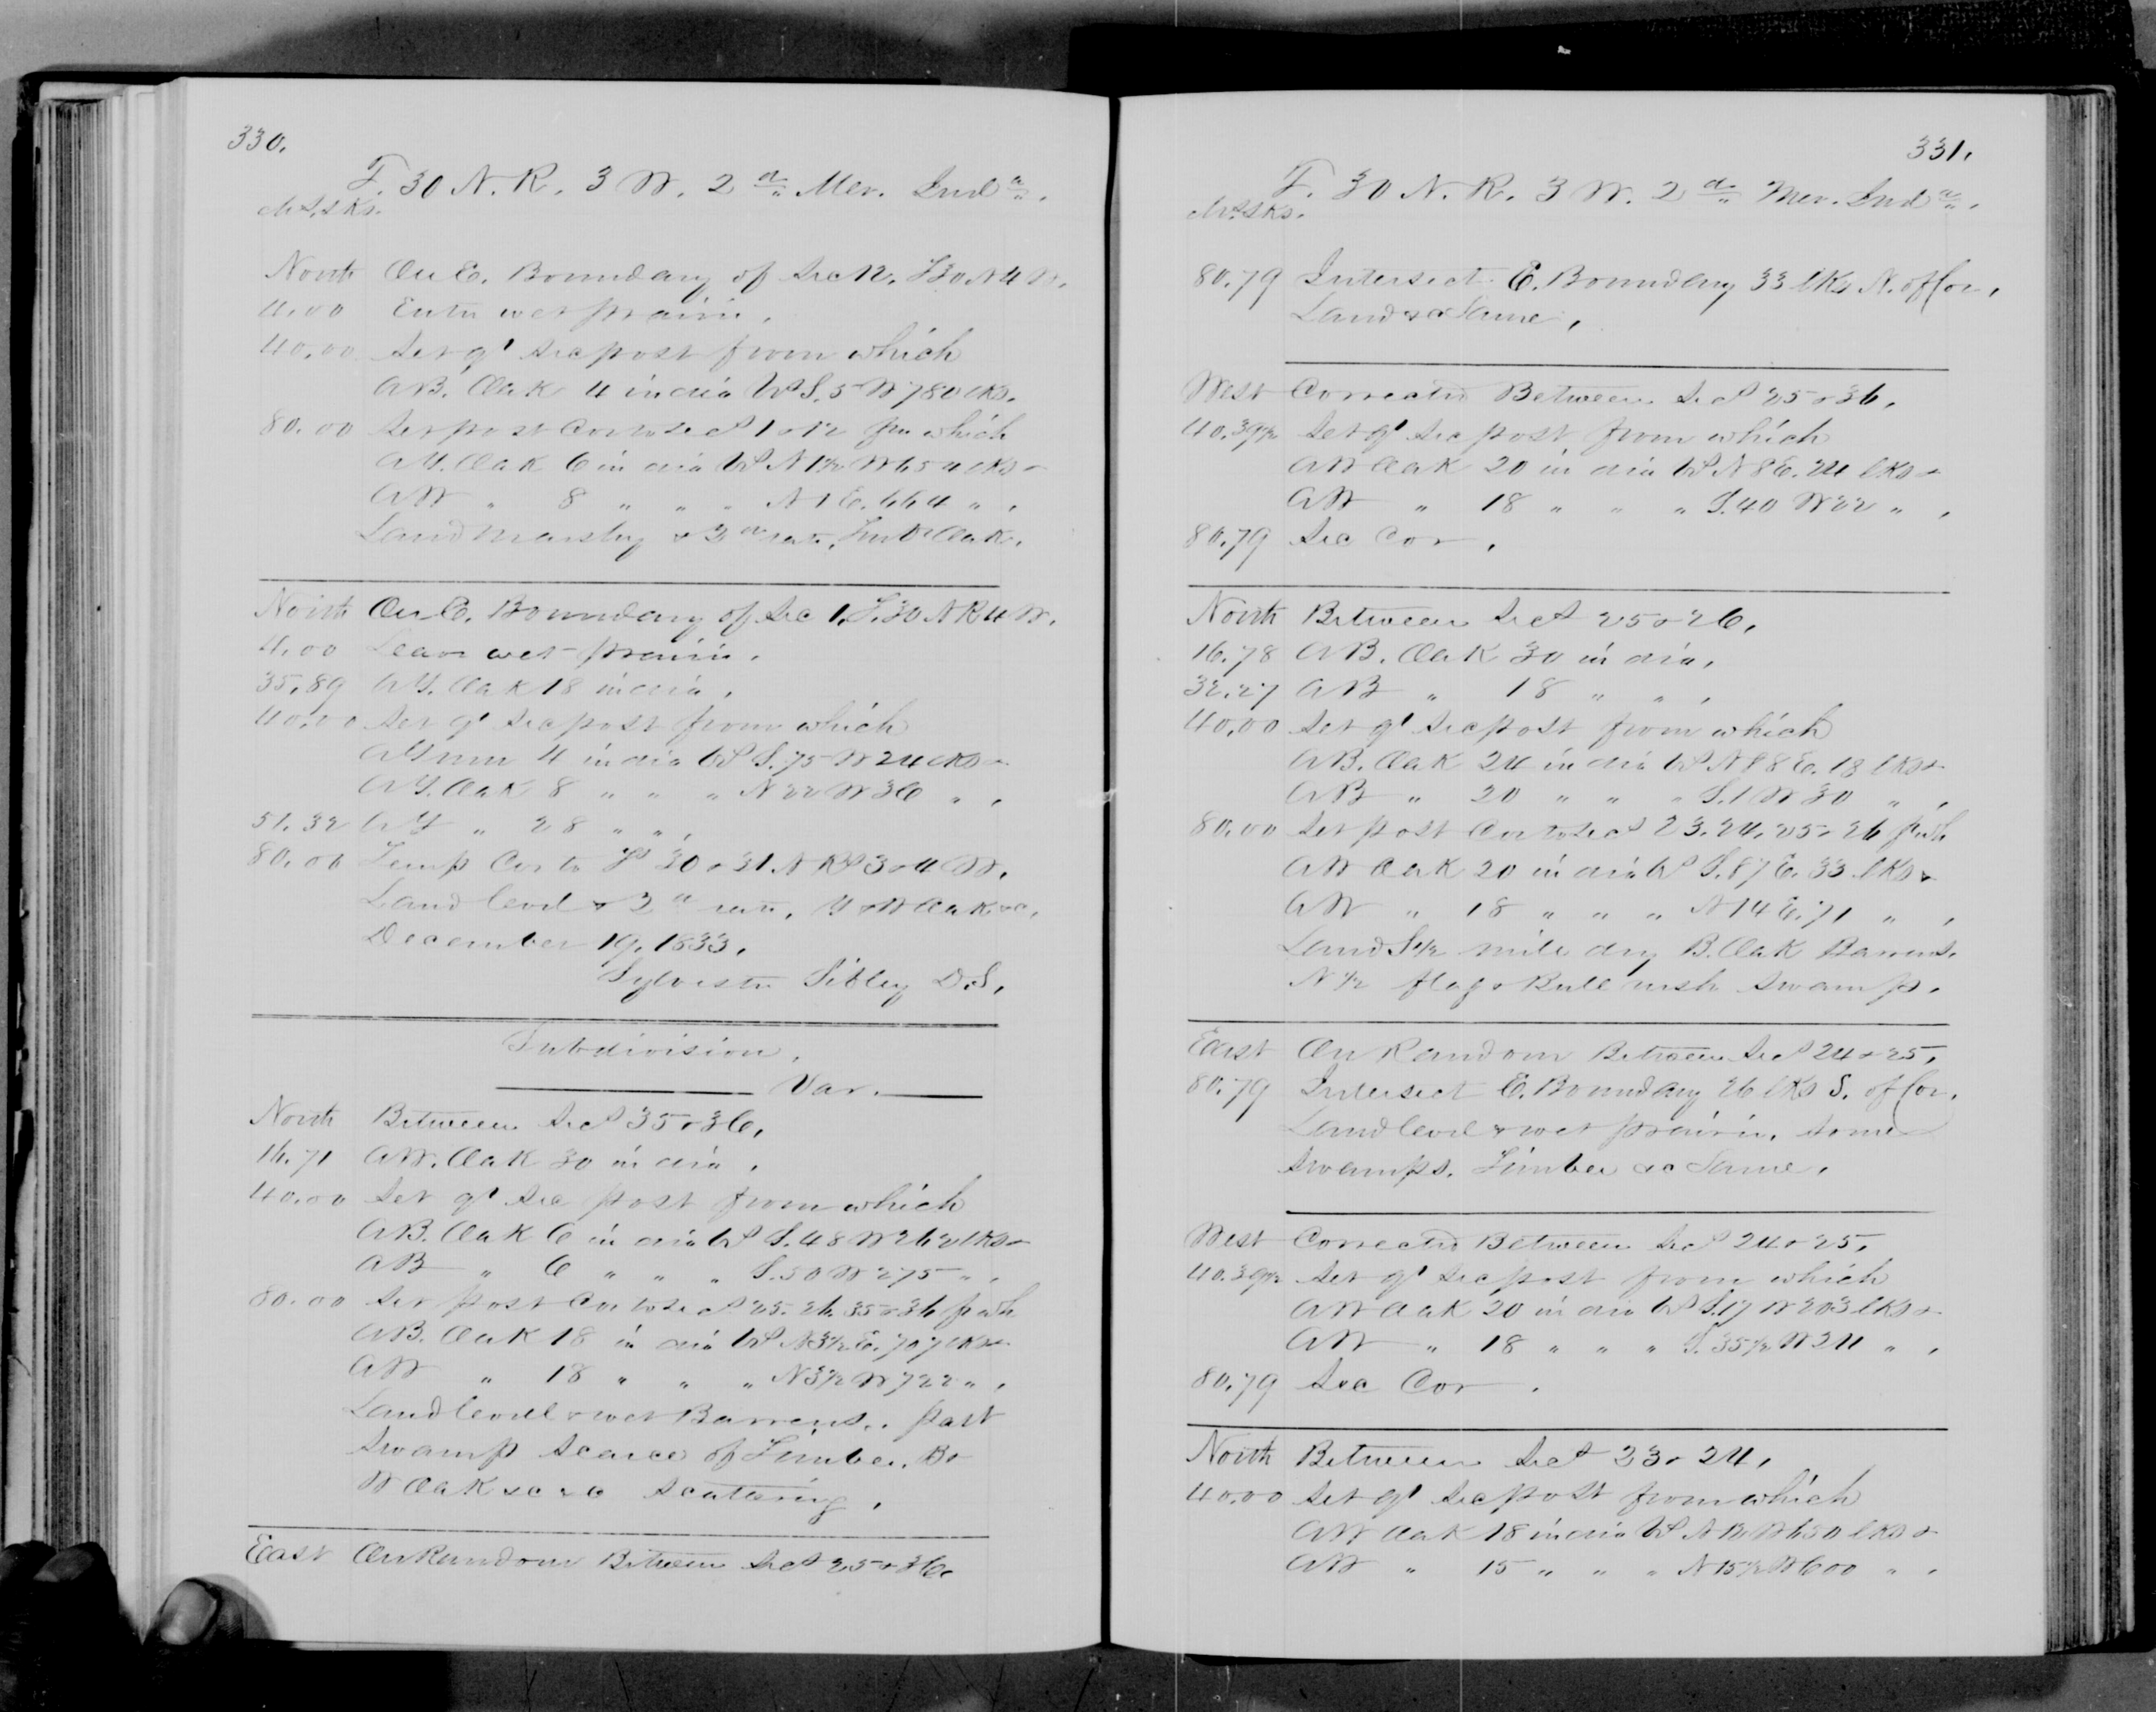 330.
T. 30 N. R. 3 W. 2d Mer. Inda.
Chs. Lks.
North On E. Boundary of Sec 12. T30 N 4 W.
4.00 Enter wet prairie.
40.00 Set qr Sec post from which
A B. Oak 4 in dia bs S. 5 W 780 lks.
80.00 Set post Cor to Secs 1 & 12 fm which
A Y. Oak 6 in dia bs N 1½ W 654 lks &
A W " 8 " " " N 1 E. 664 " .
Land Marshy & 3d rate. Tim B Oak.
North On E. Boundary of Sec 1, T. 30 N R 4 W.
4.00 Leave wet prairie.
35.89 A Y. Oak 18 in dia.
40.00 Set qr Sec post from which
A Gum 4 in dia bs S. 75 W 24 lks &
A Y. Oak 8 " " " N 22 W 36 " .
51.32 A Y " 28 " " .
80.00 Temp Cor to Ts 30 & 31. N Rs 3 & 4 W.
Land level & 3d rate. Y & W Oak &c.
December 19. 1833.
Sylvester Sibley D.S.
Subdivision.
Var.
North Between Secs 35 & 36.
16.71 A W. Oak 30 in dia.
40.00 Set qr Sec post from which
A B. Oak 6 in dia bs S. 48 W 262 lks &
A B " 6 " " " S. 50 W 275 " .
80.00 Set post Cor to Secs 25. 26. 35 & 36 f wh
A B. Oak 18 in dia bs N 3½ E. 707 lks &
A W " 18 " " " N 3½ W 722 " .
Land level & wet Barrens. part
Swamp Scarce of Timber. B &
W Oak &c &c Scattering.
East On Random Between Secs 25 & 36.
331.
T. 30 N. R. 3 W. 2d Mer. Inda.
Chs. Lks.
80.79 Intersect E. Boundary 33 lks N. of Cor.
Land &c Same.
West Corrected Between Secs 25 & 36.
40.39½ Set qr Sec post from which
A W Oak 20 in dia bs N 8 E. 24 lks &
A W " 18 " " " S. 40 W 22 " .
80.79 Sec Cor.
North Between Secs 25 & 26.
16.78 A B. Oak 30 in dia.
32.27 A B " 18 " " .
40.00 Set qr Sec post from which
A B. Oak 24 in dia bs N 88 E. 18 lks &
A B " 20 " " " S. 1 W 30 " .
80.00 Set post Cor to Secs 23. 24. 25 & 26 f wh
A W Oak 20 in dia bs S. 87 E. 33 lks &
A W " 18 " " " N 14 E. 71 " .
Land S ½ mile dry B. Oak Barrens.
N ½ flag & Bull rush Swamp.
East On Random Between Secs 24 & 25.
80.79 Intersect E. Boundary 26 lks S. of Cor.
Land level & wet prairie. some
Swamps. Timber &c Same.
West Corrected Between Secs 24 & 25.
40.39½ Set qr Sec post from which
A W Oak 20 in dia bs S. 17 W 203 lks &
A W " 18 " " " S. 35½ W 24 " .
80.79 Sec Cor.
North Between Secs 23 & 24.
40.00 Set qr Sec post from which
A W Oak 18 in dia bs N 12 W 650 lks &
A W " 15 " " " N 15½ W 600 " .